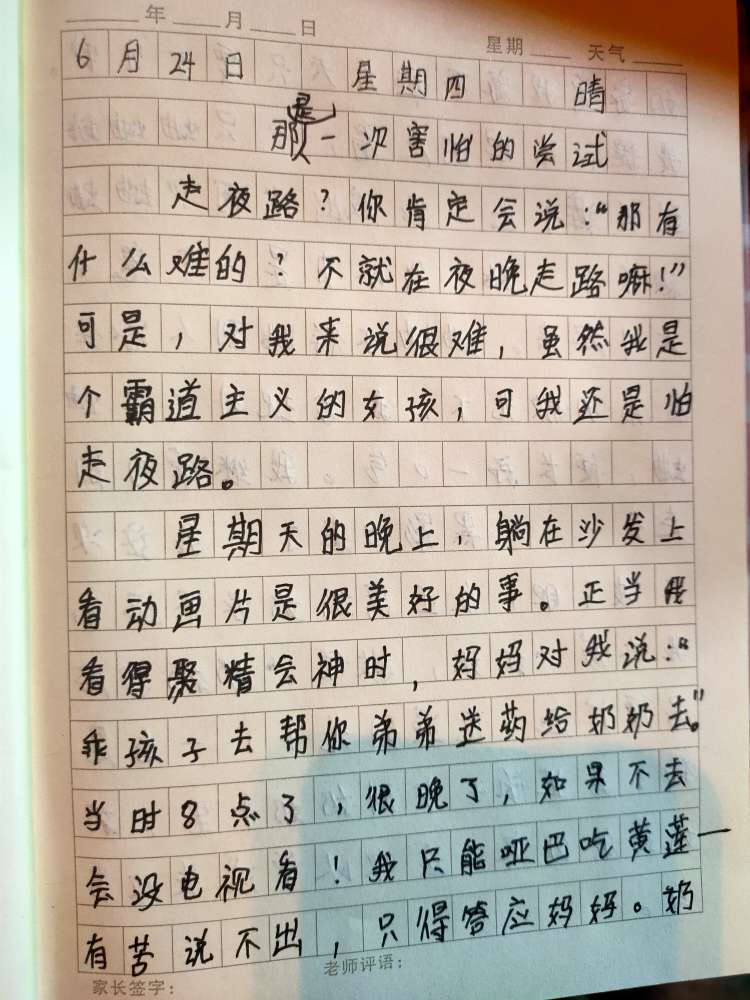 年 月 日
星期 天气
6月24日 星期四 晴
那是一次害怕的尝试
走夜路?你肯定会说:“那有
什么难的?不就在夜晚走路嘛!”
可是,对我来说很难,虽然我是
个霸道主义的女孩,可我还是怕
走夜路。
星期天的晚上,躺在沙发上
看动画片是很美好的事。正当我
看得聚精会神时,妈妈对我说:“
乖孩子去帮你弟弟送药给奶奶去。”
当时8点了,很晚了,如果不去
会没电视看!我只能哑巴吃黄莲一
有苦说不出,只得答应妈妈。奶
老师评语:
家长签字: